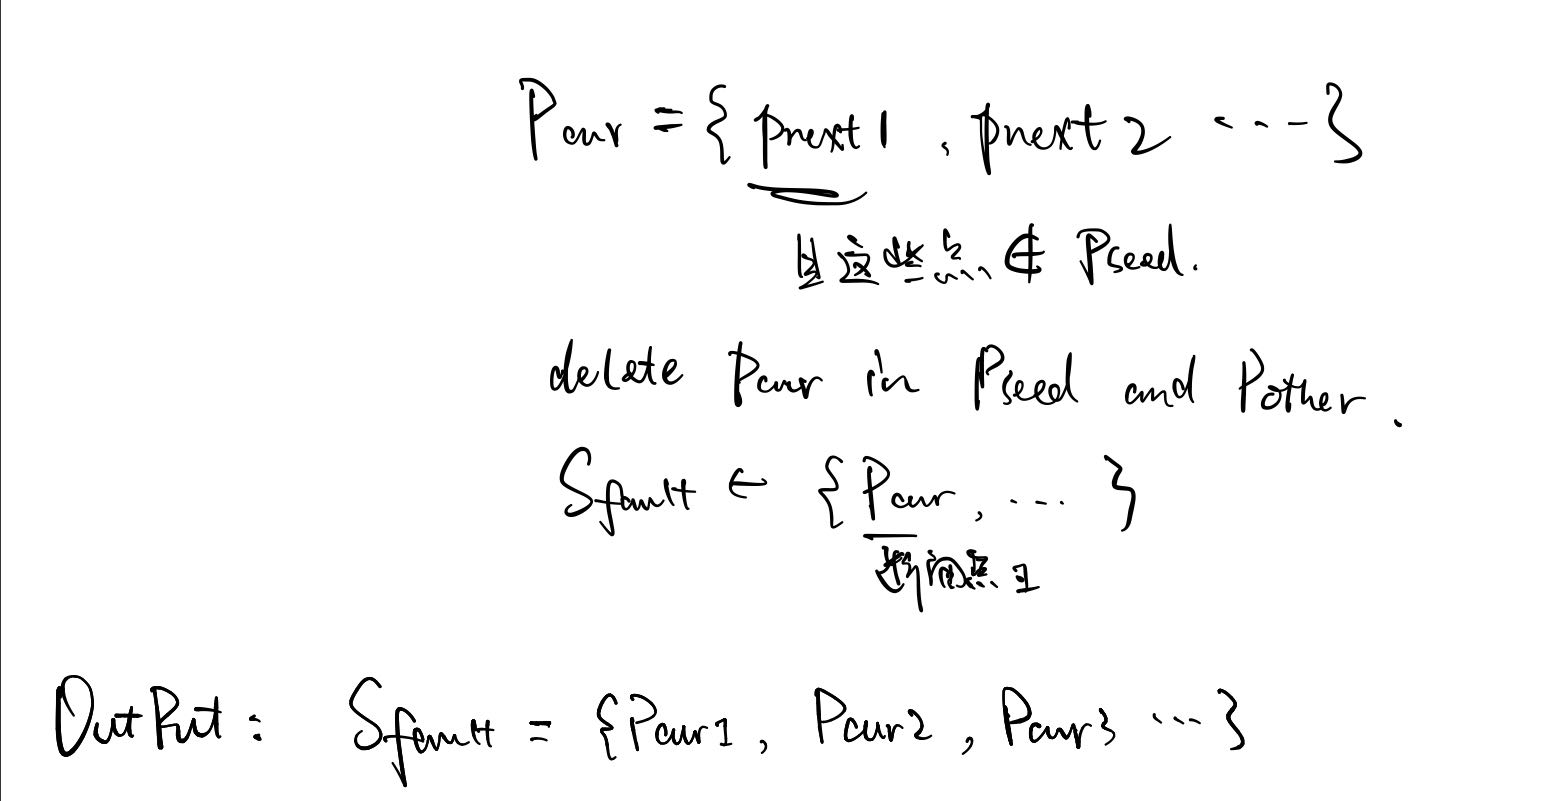 Pcur = { pnext1 , pnext2 ... }
且这些点 ∉ Pseed.
delete Pcur in Pseed and Pother.
Sfault ← { Pcur , ... }
断面点1
OutPut: Sfault = {Pcur1, Pcur2, Pcur3 ...}